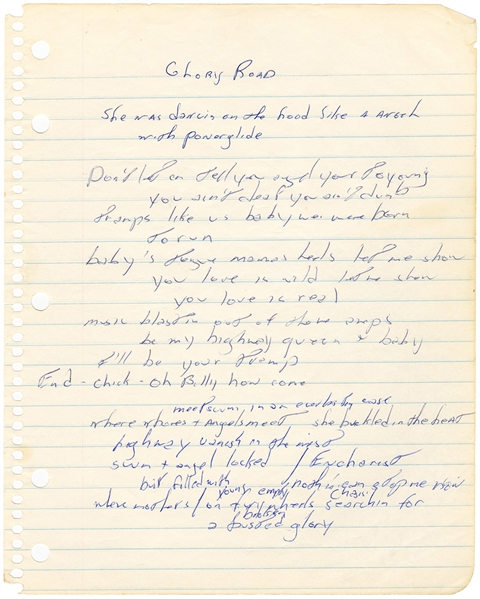 Glory Road
She was dancin on the hood like a angel
with powerglide
Don't let on tell you and your to young
you ain't deaf you ain't dumb
tramps like us baby we were born
to run
baby's tongue mamas heels let me show
you love is wild let me show
you love is real
music blastin out of these amps
be my highway queen + baby
I'll be your tramp
End - chick - oh Billy how come
meet scum, in an everlasting
where whores + Angels meet she buckled in the heat
highway vanish in the mist
scum + angel locked / Eucharist
but filled with young empty nothin can stop me now
where mothers / on fiery wheels Chasin searchin for
broken
a busted glory